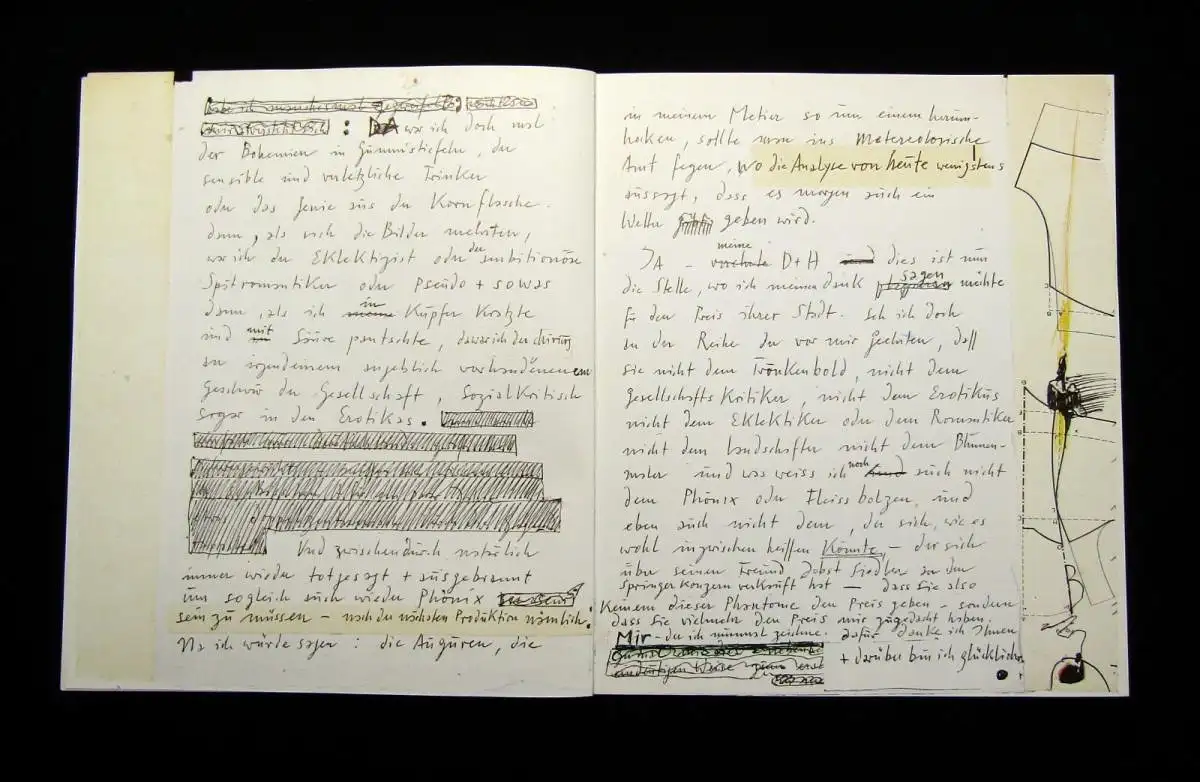 : DA war ich doch mal
der Bohemien in Gummistiefeln, der
sensible und verletzliche Trinker
oder das Jenie aus der Kornflasche.
dann, als sich die Bilder mehrten,
war ich der Eklektizist oder der ambitionöse
Spätromantiker oder Pseudo + sowas
dann, als ich in Kupfer Kratzte
und mit Säure pantschte, da war ich der chirurg
an irgendeinem angeblich vorhandenen
Geschwür der Gesellschaft, Sozialkritisch
sogar in den Erotikas.
Und zwischendurch natürlich
immer wieder totgesagt + ausgebrannt
um sogleich auch wieder Phönix
sein zu müssen – nach der nächsten Produktion nämlich.
Na ich würde sagen: die Auguren, die
in meinem Metier so um einem herum-
hoken, sollte man ins Metereologische
Amt fegen, wo die Analyse von heute wenigstens
aussagt, dass es morgen auch ein
Wetter geben wird.
JA – meine D+H dies ist nun
die Stelle, wo ich meinen Dank sagen möchte
für den Preis ihrer Stadt. Seh ich doch
an der Reihe der vor mir Geehrten, daß
sie nicht dem Trunkenbold, nicht dem
Gesellschafts Kritiker, nicht dem Erotikus
nicht dem Eklektiker oder dem Romantiker
nicht dem Landschafter nicht dem Blumen-
maler und was weiss ich noch auch nicht
dem Phönix oder Fleissbolzen, und
eben auch nicht dem, der sich, wie es
wohl inzwischen heißen Könnte – der sich
über seinen Freund Jobst Siedler an den
Springer Konzern verkauft hat – dass Sie also
Keinem dieser Phantome den Preis geben – sondern
dass Sie vielmehr den Preis mir zugedacht haben.
Mir – der ich nunmal zeichne. dafür danke ich Ihnen
+ darüber bin ich glücklich